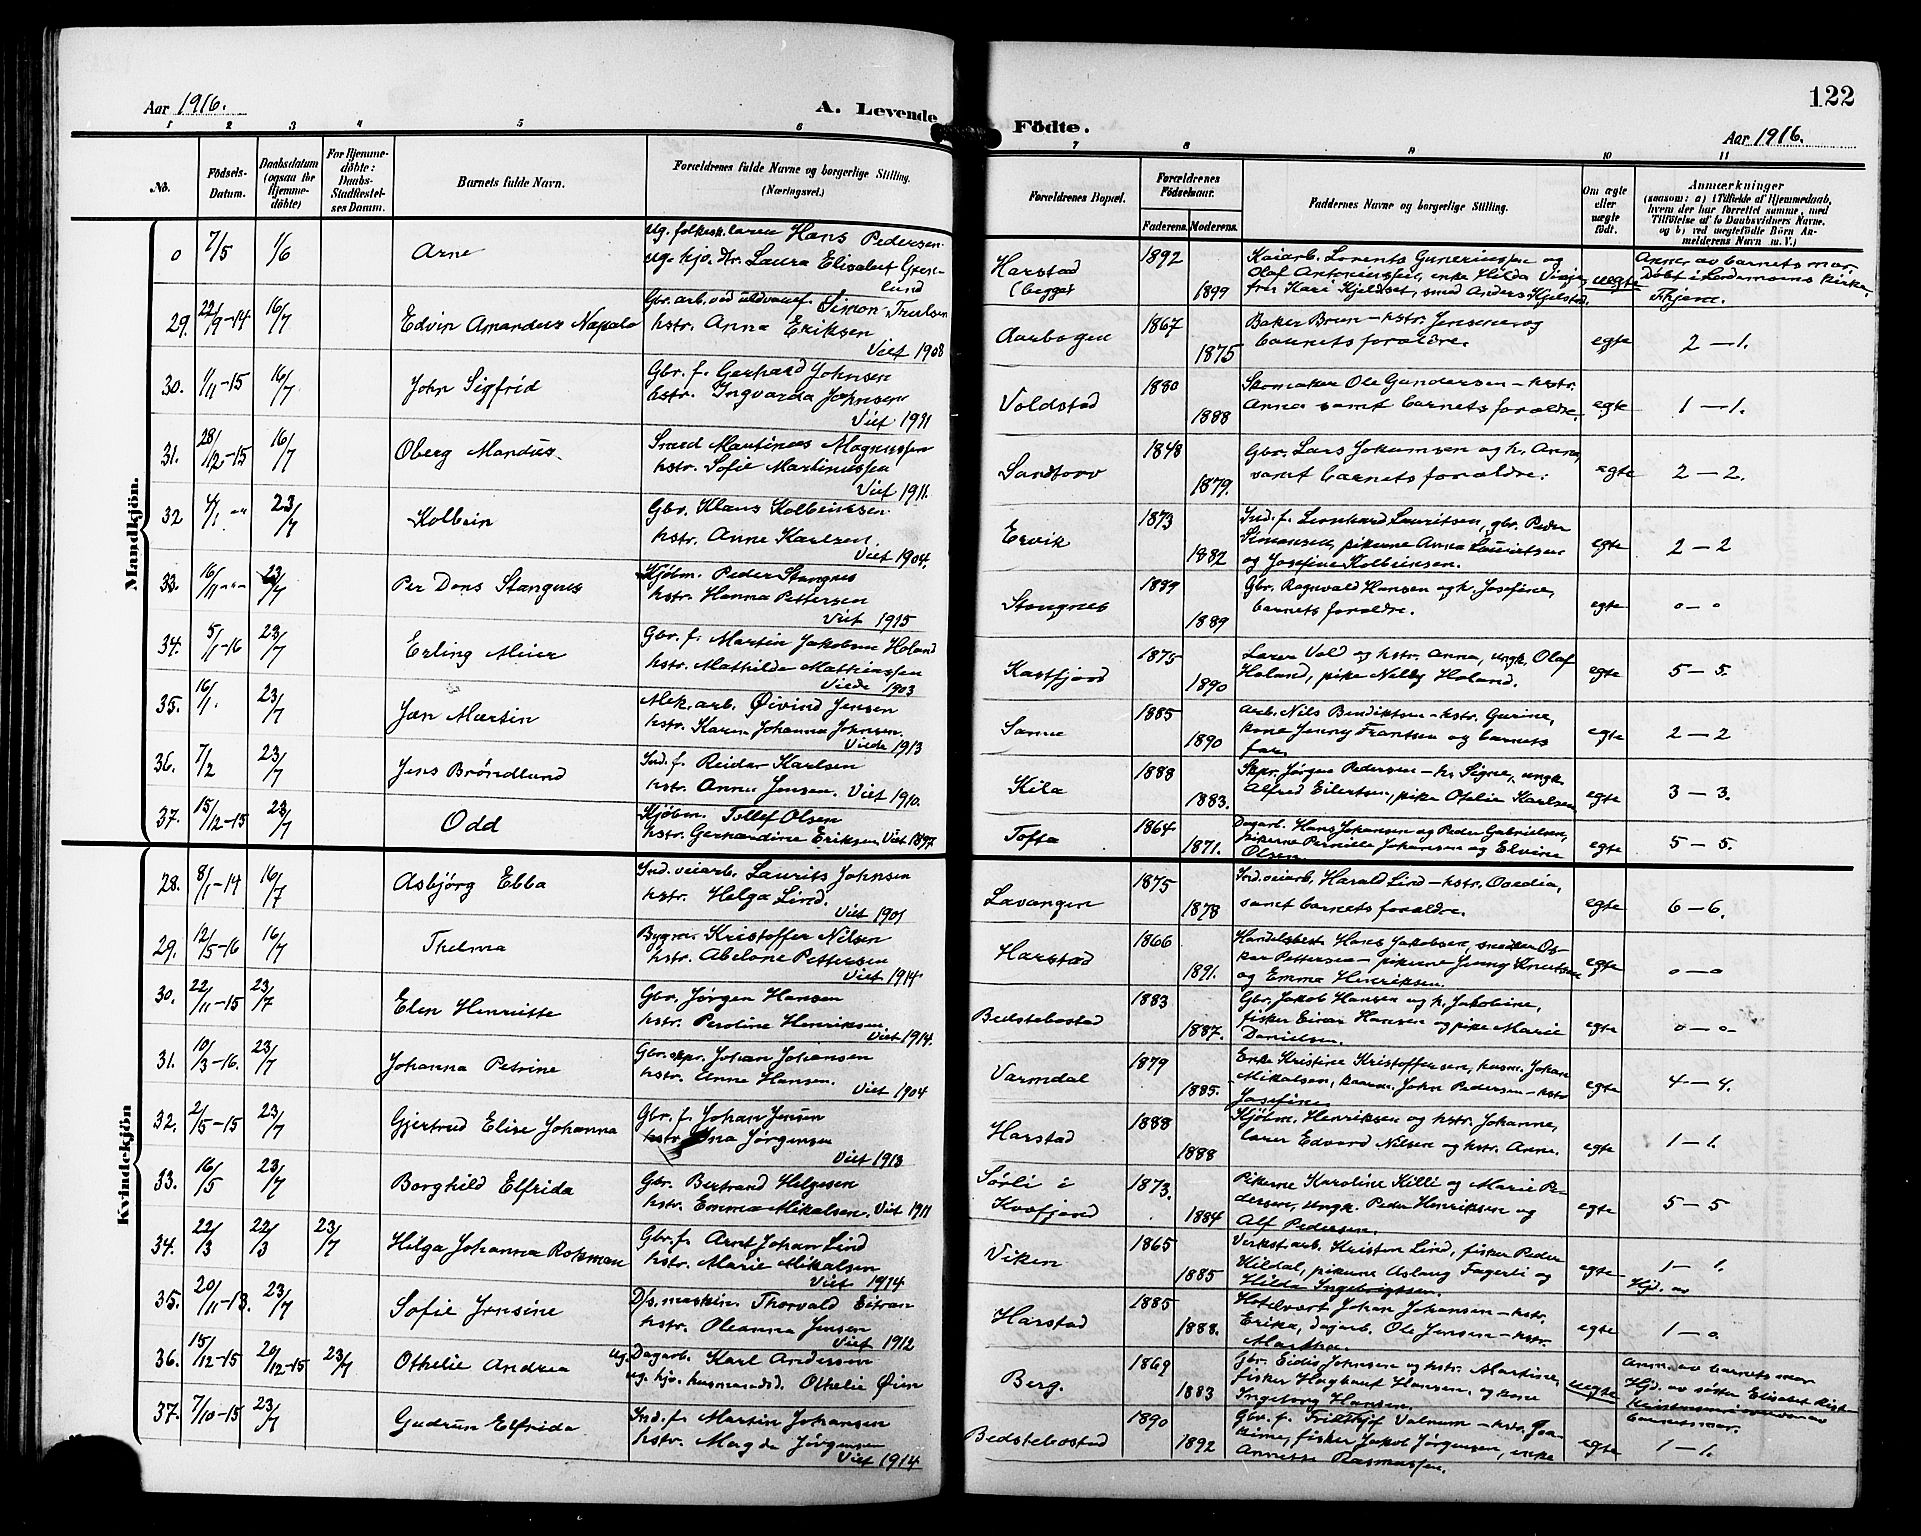 122
Aar 1916.
A. Levende
Födte.
Aar 1916.
1 2 3 4 5 6
7 8 9 10 11
No. Födsels-Datum. Daabsdatum (ogsaa for Hjemmedöbte) For Hjemmedöbte: Daabs-Stadfæstelses Datum. Barnets fulde Navn. Forældrenes fulde Navne og borgerlige Stilling. (Næringsvei.)
Forældrenes Bopæl. Forældrenes Födselsaar. Faderens. Moderens. Faddernes Navne og borgerlige Stilling. Om ægte eller uægte födt. Anmærkninger (saasom: a) i Tilfælde af Hjemmedaab, hvem der har forrettet samme, med Tilföielse af to Daabsvidners Navne, og b) ved uegtefödte Börn Anmelderens Navn m. V.)
Mandkjön.
0 7/5 1/6 Arne
Ug. folkesk.lærer Hans Pedersen
ug. hjv. Dr. Laura Elisabet Grön-
lund
Harstad (begge) 1892 1899
Kaiarb. Lorents Guneriussen og
Olaf Antoniussen, enke Hilda
fru Kari Kjeldset, smed Anders Kjelstad
uegte
Anm. av barnets mor.
Döbt i kirke,
Thjem.
29. 22/9-14 16/7 Edvin Amandus Napale
Gbr. arb. ved uldvaref. Simon Trulsen
hstr. Anna Eriksen
Viet 1908
Aarbogen 1867 1875
Baker Brun – hstr. Jensine og
barnets foraldre.
egte 2 – 1.
30. 1/11-15 16/7 John Sigfrid
Gbr. f. Gerhard Johnsen
hstr. Ingvarda Johnsen
Viet 1911
Voldstad 1880 1888
Skomaker Ole Gundersen – hstr.
Anna samt barnets foraldre.
egte 1 – 1.
31. 28/12-15 16/7 Oberg Mandus.
Smed Martinus Magnussen
hstr. Sofie Martinussen
Viet 1911.
Sandtorv 1848 1879.
Gbr. Lars Jakobsen og h. Anna,
samt barnets foraldre.
egte 2 – 2.
32 4/1 " 23/7 Kolbein
Gbr. Klaus Kolbeinsen
hstr. Anne Karlsen.
Viet 1904.
Ervik 1873 1882
Ind. f. Leonhard Lauritsen, gbr. Peder
Simonsen, pikerne Anna Lauritsen
og Josefine Kolbeinsen.
egte 2 – 2
33. 16/11 " 23/7 Per Dons Stangnes
Kjøbm. Peder Stangnes
hstr. Hanna Pettersen
Viet 1915
Stangnes 1889 1889
Gbr. Ragnvald Hansen og h. Josefine,
barnets foraldre.
egte 0 – 0
34. 5/1-16 23/7 Erling Meier
Gbr. f. Martin Jakobsen Holand
hstr. Mathilde Mathiassen
Viede 1903
Kasfjord 1875 1890
Lærer Vold og hstr. Anna, ungk. Olaf
Holand, pike Nelly Holand.
egte 5 – 5.
35. 16/1. 23/7 Jan Martin
Mek. arb. Øivind Jensen
hstr. Karen Johanna Johnsen.
Viede 1913
Sama 1885 1890
Arb. Nils Bendiktsen – hstr. Gurine,
kone Jenny Frantsen og barnets
far
egte 2 – 2
36. 7/2 23/7 Jens Bröndlund
Ind. f. Reidar Karlsen
hstr. Anna Jensen. Viet 1910.
Kila 1888 1883.
Skpr. Jørgen Pedersen – h. Signe, ungk.
Alfred Eilertsen, pike Otelie Karlsen
egte 3 – 3.
37. 15/12-15 23/7 Odd
Kjøbm. Tollef Olsen
hstr. Gerhardine Eriksen Viet 1897
Tofta 1864 1871.
Dagarb. Hans Johansen og Peder Gabrielsen,
pikerne Pernille Johansen og Elvine
Olsen
egte 5 – 5.
Kvindekjön
28. 8/1-14 16/7 Asbjörg Ebba
Ind. veiarb. Laurits Johnsen
hstr. Helga Lind.
Viet 1901
Lavangen 1875 1878
Ind. veiarb. Harald Lind – hstr. Ovedia,
samt barnets foraldre.
egte 6 – 6.
29. 12/5-16 16/7 Thelma
Bygm. Kristoffer Nilsen
hstr. Abelone Pettersen
Viet 1914
Harstad 1866 1891.
Handelsbest. Hans Jakobsen, snedker Os-
kar Pettersen – pikerne Jenny Knutsen
og Emma Henriksen.
egte 0 – 0
30. 22/11-15 23/7 Elen Henriette
Gbr. Jørgen Hansen
hstr. Peroline Henriksen
Viet 1914.
Bedstebostad 1883 1887.
Gbr. Jakob Hansen og h. Jakobine,
fisker Einar Hansen og pike Marie
Danielsen.
egte 0 – 0.
31. 10/3-16. 23/7 Johanna Petrine
Gbr. skpr. Johan Johansen
hstr. Anne Hansen.
Viet 1904
Varmdal 1879 1885.
Enke Kristine Kristoffersen, husm. Johan
Mikalsen, kaarm. John Pedersen – hstr.
Josefine
egte 4 – 4.
32. 2/5-15 23/7 Gjertrud Elise Johanna
Gbr. f. Johan Jensen
hstr. Ina Jørgensen
Viet 1913
Harstad 1888 1888
Kjøbm. Henriksen og hstr. Johanne,
lærer Edvard Nilsen og hstr. Anne.
egte 1 – 1.
33. 16/5 23/7 Borghild Elfrida
Gbr. Bertrand Helgesen
hstr. Emma Mikalsen. Viet 1911
Sørli i Kvæfjord 1873. 1884
Pikerne Karoline Killi og Marie Pe-
dersen, ungk. Peder Henriksen og
Alf Pedersen.
egte 5 – 5
34. 22/3 22/3 23/7 Helga Johanna Rotsman
Gbr. f. Arnt Johan Lind
hstr. Marie Mikalsen
Viet 1914
Viken 1865 1885
Verkstarb. Kristen Lind, fisker Peder
Hildal, pikerne Aslaug Fagerli og
Hilda Ingebrigtsen.
egte 1 – 1.
Hjd. av
35. 20/11-13. 23/7 Sofie Jensine
D/s. maskin. Thorvald Eitran
hstr. Oleanna Jensen
Viet 1912
Harstad 1885 1888.
Hotelvært Johan Johansen – hstr.
Erika, dagarb. Ole Jensen – hstr.
Martha.
egte 1 – 0
36. 15/12-15 20/12-15 23/7 Othelie Andrea
ug. Dagarb. Karl Andersen
ug. hjv. husmandsd. Othelie Øien
Berg. 1869 1883
Gbr. Eidis Johnsen og hstr. Martine,
fisker Hagbart Hansen, og kone
Ingeborg Hansen.
uegte
Anm. av barnets mor
Hjd. av søster Elisabet
barnets mor.
37. 7/10-15 23/7 Gudrun Elfrida
Ind. f. Martin Johansen
hstr. Magda Jørgensen
Viet 1914
Bedstebostad 1890 1892
Gbr. f. Fridthjof Valnum – hstr. Joa-
kime, fisker Jakob Jørgensen, enke
Annette Rasmussen.
egte 1 – 1.